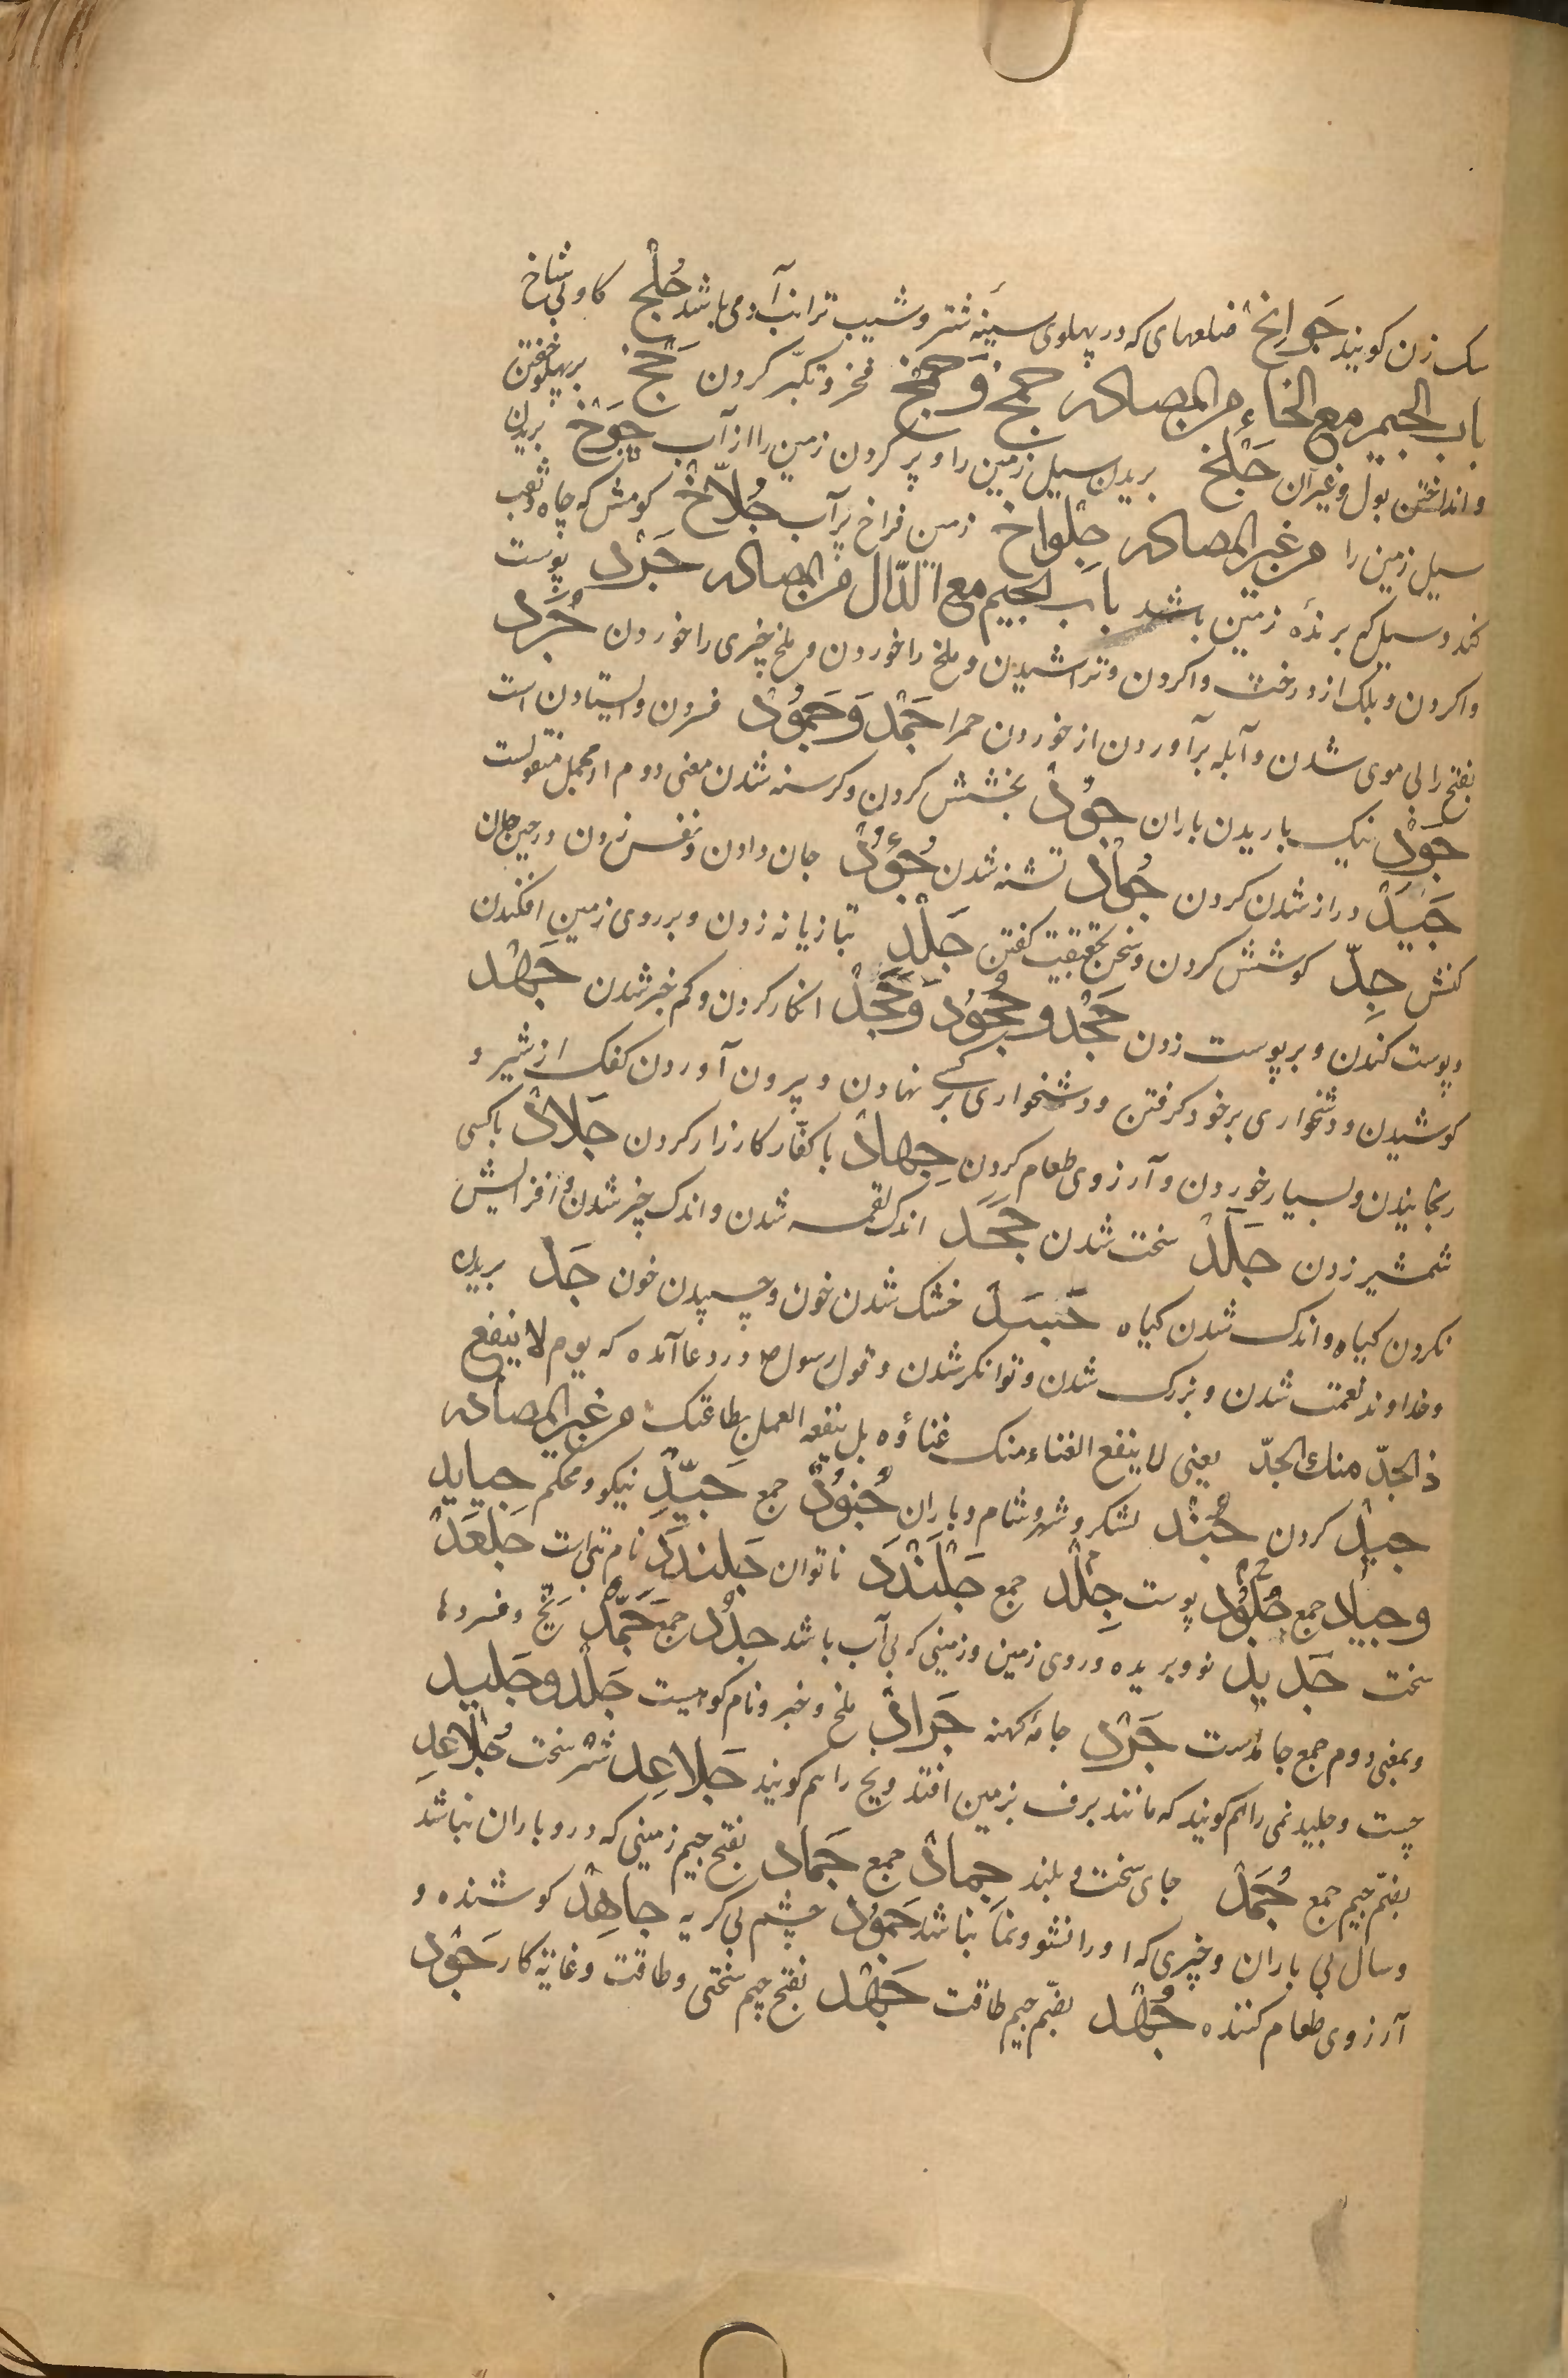 سک زن کویند جَوانِحْ ضلعهای که در پهلوی سینهٔ شتر و شیب ترائب آدمی باشد جُلْحٌ کاو بی شاخ
باب الجیم مع الخاء من المصادر جمخ وَجمخ فخر و تکبّر کردن جَخّ بر پهلو خفتن
و انداختن بول و غیر آن جَلْخ بریدن سیل زمین را و پر کردن زمین را از آب جَوْخْ بریدن
سیل زمین را من غیر المصادر جِلْواخ زمین فراخ پر آب جُلاّخْ کومش که چاه و نقب
کند و سیل که برندهٔ زمین باشد باب الجیم مع الدّال من المصادر جَرْد پوست
واکردن و بلک از درخت واکردن و تراشیدن و ملخ را خوردن و ملخ چیزی را خوردن جُرَد
بفتح را بی موی شدن و آبله برآوردن از خوردن جَمْد وَجَمُوْد فسردن و ایستادن است
جَوْد نیک باریدن باران جُوْد بخشش کردن و کرسنه شدن معنی دوم از مجمل منقولست
جَیَدْ دراز شدن کردن جُوادْ تشنه شدن جُؤُدْ جان دادن و نفس زدن در حین جان
کنش جِدّ کوشش کردن و سخن بحقیقت کفتن جَلْد تازیانه زدن و بر روی زمین افکندن
و پوست کندن و بر پوست زدن جَحْد و جُحُوْد وَجَحَدْ انکار کردن و کم خیر شدن جَهْد
کوشیدن و دشخواری بر خود کرفتن و دشخواری بر کسی نهادن و بیرون آوردن کفک از شیر و
رنجانیدن و بسیار خوردن و آرزوی طعام کردن جِهادْ با کفّار کارزار کردن جَلادْ با کسی
شمشیر زدن جَلَدْ سخت شدن جَحَد اندک لقمه شدن و اندک چیز شدن و افزایش
نکردن کیاه و اندک شدن کیاه جَسَدْ خشک شدن خون و چسپیدن خون جَدّ بریدن
و خداوند نعمت شدن و بزرک شدن و توانکر شدن و قول رسول ص در دعا آمده که یوم لا ینفع
ذا الجدّ منك الجدّ یعنی لا ینفع الغناء منک غناؤه بل ینفعه العمل بطاعتک من غیر المصادر
جیدْ کردن جُنْد لشکر و شهر شام و یاران جُنُوْدٌ جمع جَیِّدْ نیکو و محکم جیاید
و جیاد جمع جُلُوْد پوست جِلْد جمع جَلَنْدَد ناتوان جَلَندَد نام بتی است جَلعَدْ
سخت جَدید نو و بریده و روی زمین و زمینی که بی آب باشد جدُد جمع جَمَدْ یخ و فسردها
و بمعنی دوم جمع جامدست جَرْد جامهٔ کهنه جَرادْ ملخ و خبر و نام کوهیست جَلْد و جَلید
چست و جلید نمی را هم کویند که مانند برف بزمین افتد و یخ را هم کویند جَلاعِد شتر سخت جُلاعِد
بضمّ جیم جمع جُمَدْ جای سخت و بلند جِمادْ جمع جَماد بفتح جیم زمینی که درو باران نباشد
و سال بی باران و چیزی که او را نشو و نما نباشد جَمُوْد چشم بی کریه جاهِدْ کوشنده و
آرزوی طعام کننده جُهْد بضمّ جیم طاقت جَهْد بفتح جیم سختی و طاقت و غایة کار جَوْد